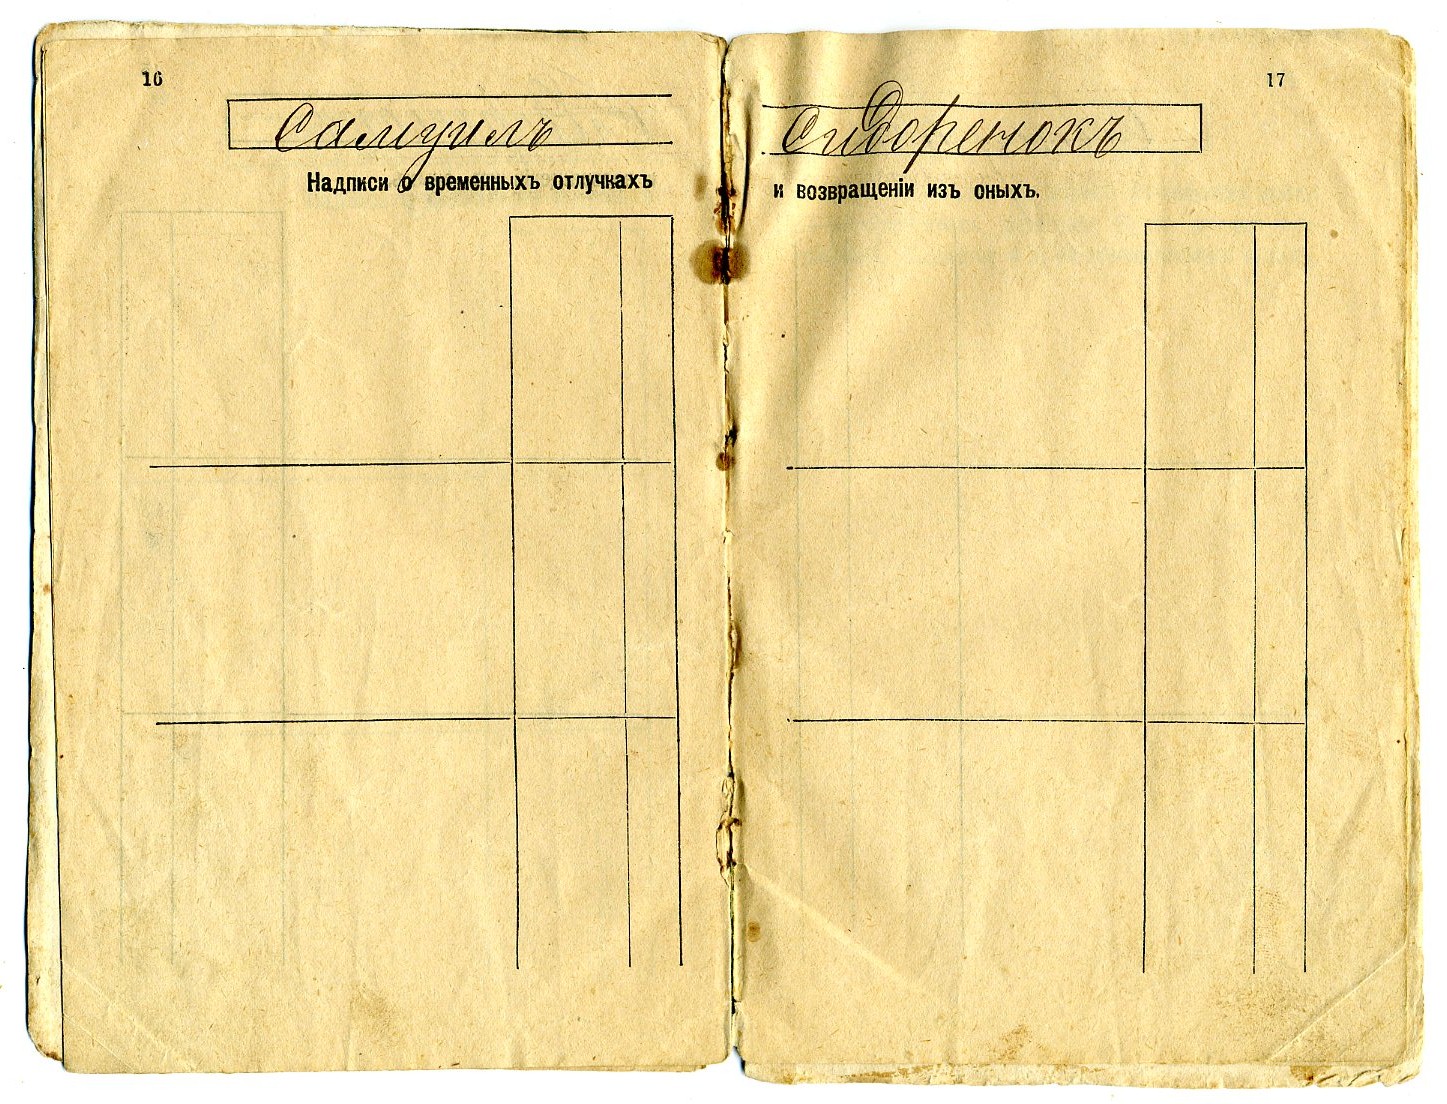 16
Самуилъ
Надписи о временныхъ отлучкахъ
17
Сидоренокъ
и возвращеніи изъ оныхъ.